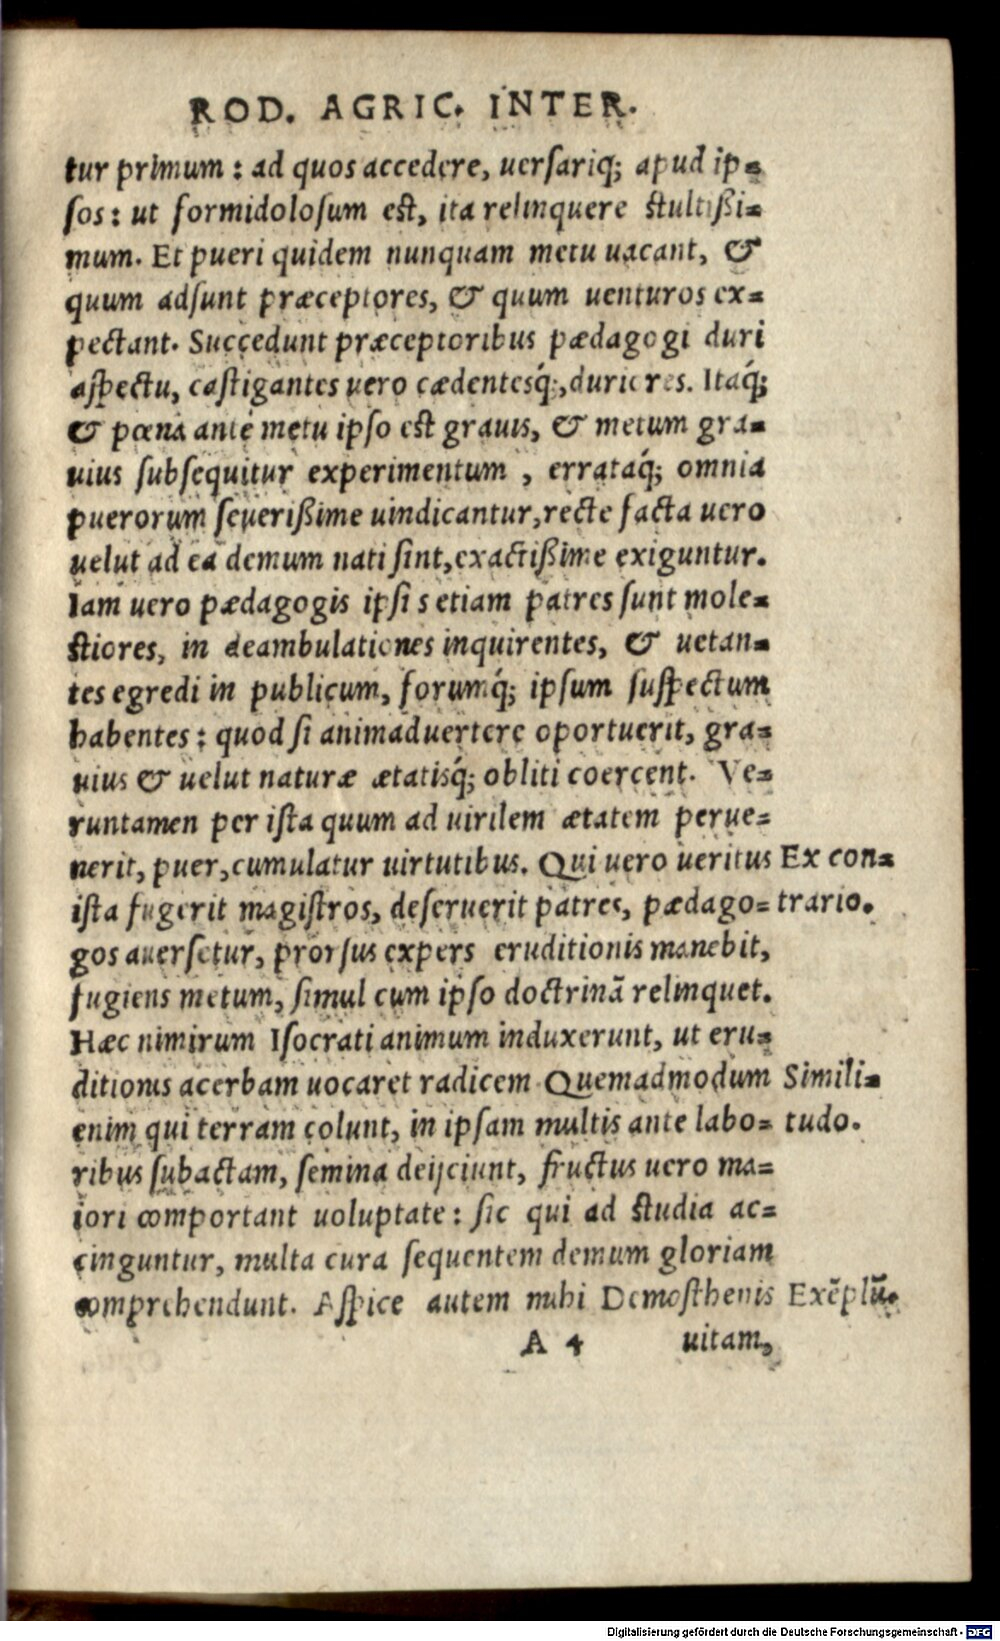 ROD. AGRIC. INTER.
tur primum : ad quos accedere, uersariq; apud ip=
sos : ut formidolosum est, ita relinquere stultißi=
mum. Et pueri quidem nunquam metu uacant, &
quum adsunt præceptores, & quum uenturos ex=
pectant. Succedunt præceptoribus pædagogi duri
aspectu, castigantes uero cædentesq́;, duriores. Itaq́;
& pœna ante metu ipso est grauis, & metum gra=
uius subsequitur experimentum , errataq́; omnia
puerorum seuerißime uindicantur, recte facta uero
uelut ad ea demum nati sint, exactißime exiguntur.
Iam uero pædagogis ipsis etiam patres sunt mole=
stiores, in deambulationes inquirentes, & uetan=
tes egredi in publicum, forumq́; ipsum suspectum
habentes : quod si animaduertere oportuerit, gra=
uius & uelut naturæ ætatisq́; obliti coercent. Ve=
runtamen per ista quum ad uirilem ætatem perue=
nerit, puer, cumulatur uirtutibus. Qui uero ueritus Ex con=
ista fugerit magistros, deseruerit patres, pædago= trario.
gos auersetur, prorsus expers eruditionis manebit,
fugiens metum, simul cum ipso doctrinā relinquet.
Hæc nimirum Isocrati animum induxerunt, ut eru=
ditionis acerbam uocaret radicem Quemadmodum Simili=
enim qui terram colunt, in ipsam multis ante labo= tudo.
ribus subactam, semina deijciunt, fructus uero ma=
iori comportant uoluptate : sic qui ad studia ac=
cinguntur, multa cura sequentem demum gloriam
comprehendunt. Aspice autem mihi Demosthenis Exēplū.
A 4 uitam,
Digitalisierung gefördert durch die Deutsche Forschungsgemeinschaft - DFG